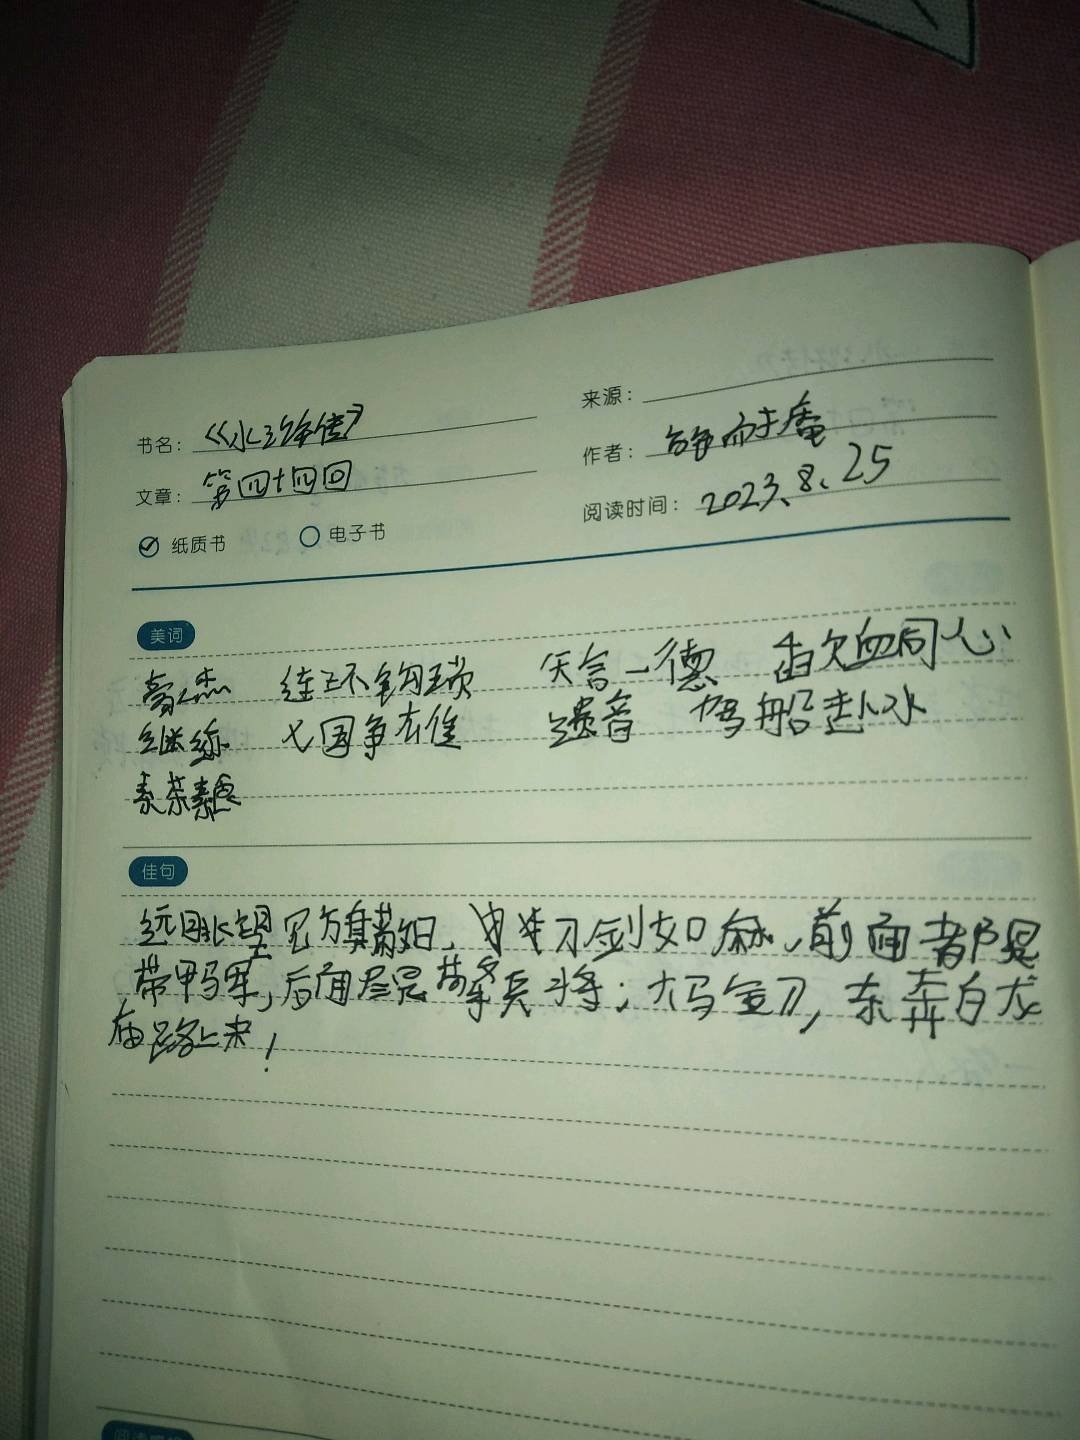 书名：《水浒传》
来源：
文章：第四十四回
作者：施耐庵
纸质书 电子书
阅读时间：2023.8.25
美词
豪杰 连环钩锁 天言一德 歃血同心
继绝 七国争雄 遗音 驾船赴水
素茶素
佳句
远远望见旗蔽日，刀剑如麻，前面都是
带甲马军，后面尽是擎兵将；大马金刀，东奔白龙
庙路上来！